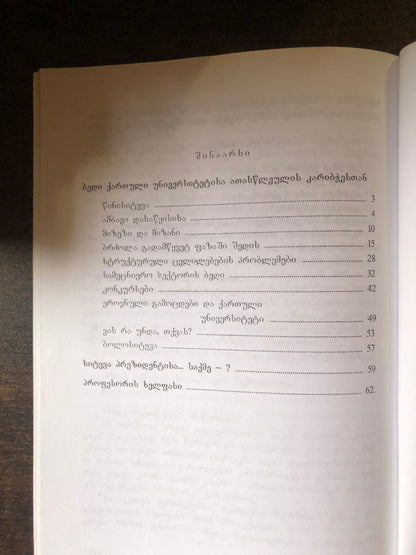 შინაარსი
ბედი ქართული უნივერსიტეტისა ათასწლეულის კარიბჭესთან
წინისიტყვა 3
ამბავი დასაწყისისა 4
მიზეზი და მიზანი 10
ბრძოლა გადამწყვეტ ფაზაში შედის 15
სტრუქტურული ცვლილებების პრობლემები 28
სამეცნიერო სექტორის ბედი 32
კონკურსები 42
ეროვნული გამოცდები და ქართული
უნივერსიტეტი 49
ვის რა უნდა, თქვას? 53
ბოლოსიტყვა 57
სიტყვა პრეზიდენტისა... საქმე – ? 59
პროფესორის ხელფასი 62